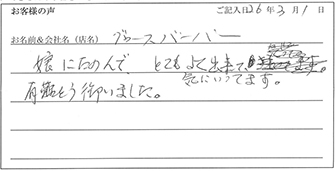 お客様の声
ご記入日26年3月1日
お名前&会社名(店名) グロースバーバー
娘にたのんで、とてもよく出来て、
気にいってます。
有難とう御いました。